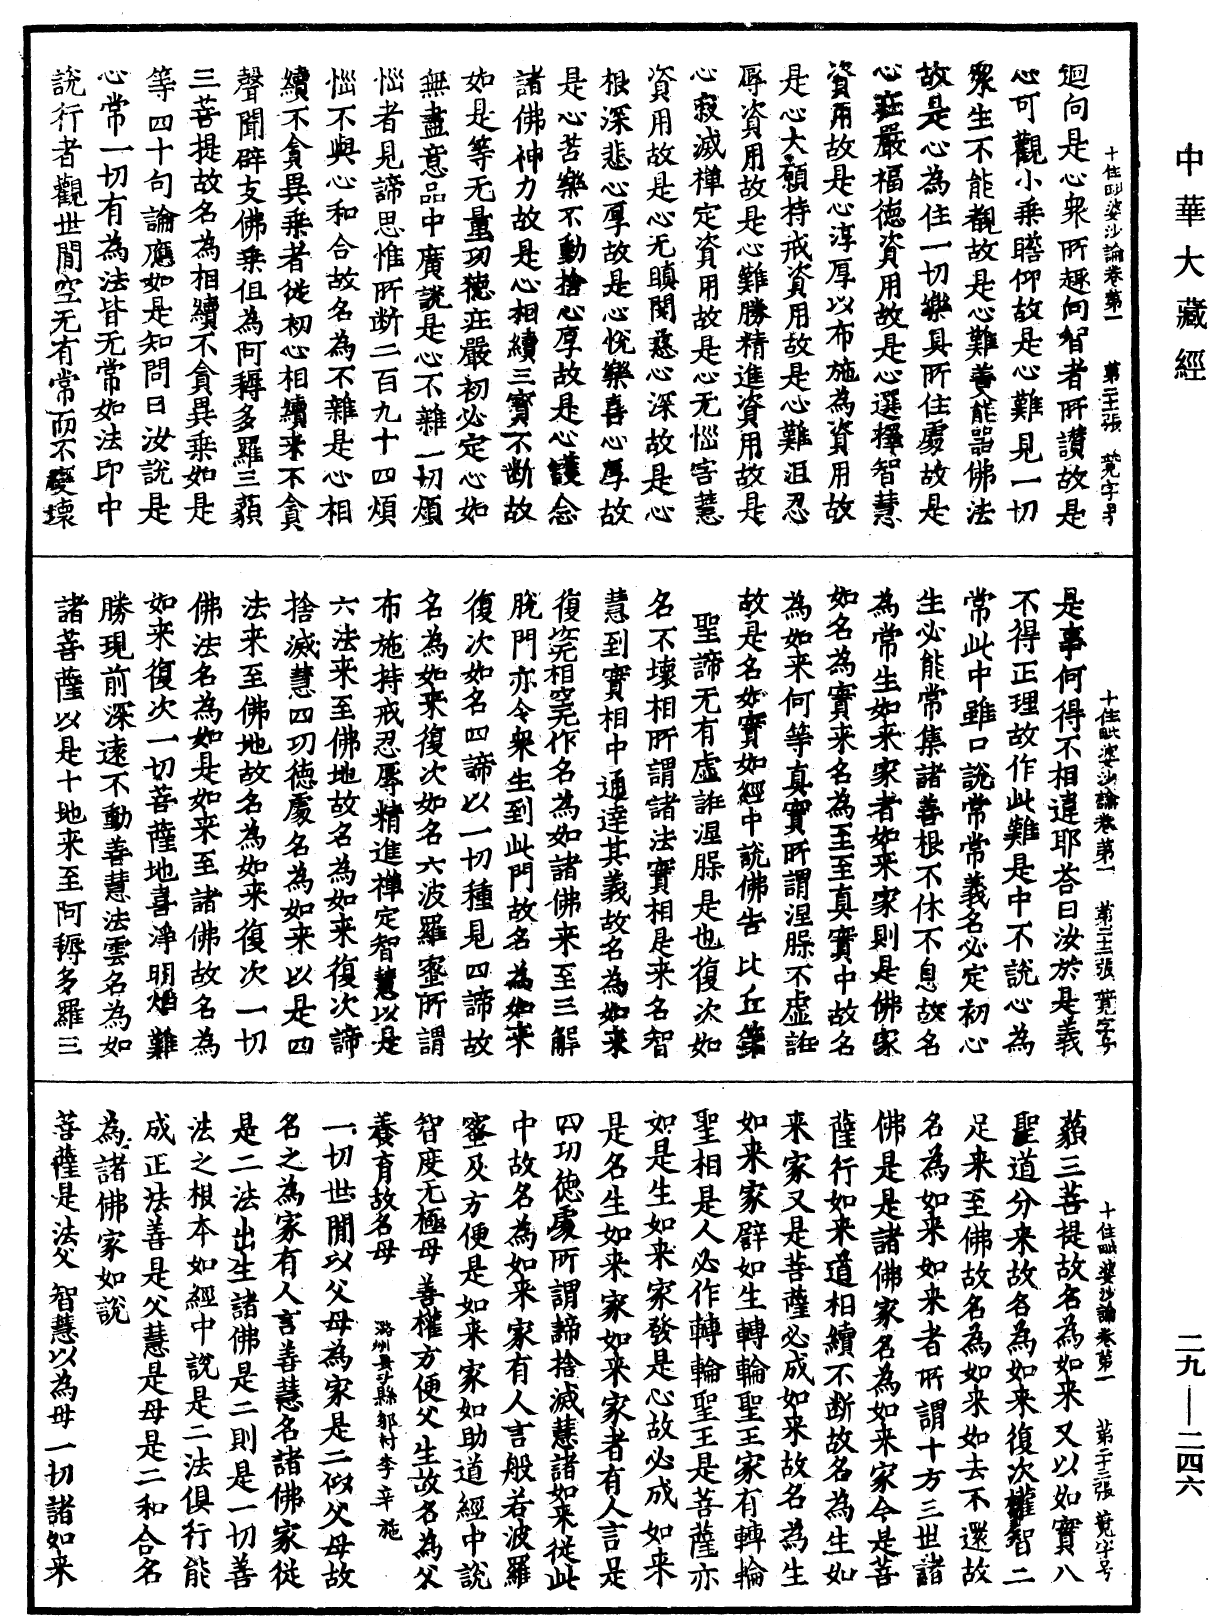 中華大藏經
十住毗婆沙論卷第一 第二十一張 竟字号
迴向是心衆所趣向智者所讃故是
心可觀小乘瞻仰故是心難見一切
衆生不能覩故是心難養能器佛法
故是心為住一切樂具所住處故是
心莊嚴福德資用故是心選擇智慧
資用故是心淳厚以布施為資用故
是心大願持戒資用故是心難沮忍
辱資用故是心難勝精進資用故是
心寂滅禪定資用故是心无惱害慧
資用故是心无瞋閡慈心深故是心
根深悲心厚故是心悅樂喜心厚故
是心苦樂不動捨心厚故是心護念
諸佛神力故是心相續三寶不断故
如是等无量功德莊嚴初必定心如
無盡意品中廣說是心不雜一切煩
惱者見諦思惟所断二百九十四煩
惱不與心和合故名為不雜是心相
續不貪異乘者從初心相續来不貪
聲聞辟支佛乘但為阿耨多羅三藐
三菩提故名為相續不貪異乘如是
等四十句論應如是知問曰汝說是
心常一切有為法皆无常如法印中
說行者觀世間空无有常而不變壞
十住毗婆沙論卷第一 第二十二張 竟字号
是事何得不相違耶荅曰汝於是義
不得正理故作此難是中不說心為
常此中雖口說常常義名必定初心
生必能常集諸善根不休不息故名
為常生如来家者如来家則是佛家
如名為實来名為至至真實中故名
為如来何等真實所謂涅槃不虛誑
故是名如實如經中說佛告比丘第一
聖諦无有虛誑涅槃是也復次如
名不壞相所謂諸法實相是来名智
慧到實相中通達其義故名為如来
復次空无相无作名為如諸佛来至三解
脫門亦令衆生到此門故名為如来
復次如名四諦以一切種見四諦故
名為如来復次如名六波羅蜜所謂
布施持戒忍辱精進禪定智慧以是
六法来至佛地故名為如来復次諦
捨滅慧四功德處名為如来以是四
法来至佛地故名為如来復次一切
佛法名為如是如来至諸佛故名為
如来復次一切菩薩地喜淨明焰難
勝現前深遠不動善慧法雲名為如
諸菩薩以是十地来至阿耨多羅三
十住毗婆沙論卷第一 第二十三張 竟字号
藐三菩提故名為如来又以如實八
聖道分来故名為如来復次權智二
足来至佛故名為如来如去不還故
名為如来如来者所謂十方三世諸
佛是是諸佛家名為如来家今是菩
薩行如来道相續不断故名為生如
来家又是菩薩必成如来故名為生
如来家譬如生轉輪聖王家有轉輪
聖相是人必作轉輪聖王是菩薩亦
如是生如来家發是心故必成如来
是名生如来家如来家者有人言是
四功德處所謂諦捨滅慧諸如来從此
中故名為如来家有人言般若波羅
蜜及方便是如来家如助道經中說
智度无極母 善權方便父 生故名為父
養育故名母 潞州長子縣邬村李辛施
一切世間以父母為家是二似父母故
名之為家有人言善慧名諸佛家從
是二法出生諸佛是二則是一切善
法之根本如經中說是二法俱行能
成正法善是父慧是母是二和合名
為諸佛家如說
菩薩是法父 智慧以為母 一切諸如来
二九—二四六